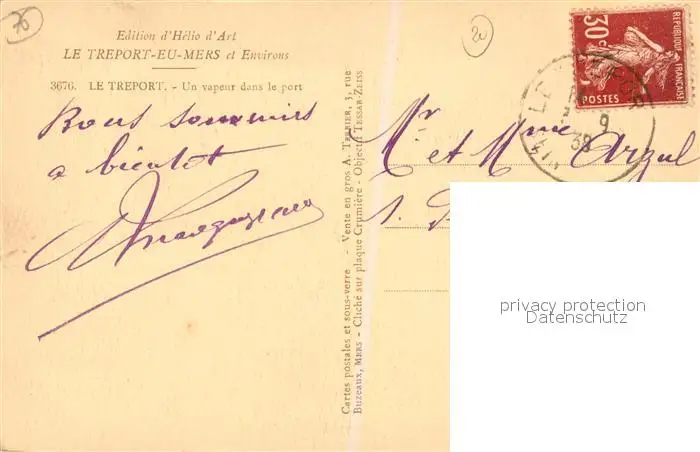 76
20
Edition d'Hélio d'Art
LE TREPORT-EU-MERS et Environs
3676. LE TREPORT. - Un vapeur dans le port
Bons souvenirs
a bientot
Cartes postales et sous-verre - Vente en gros A. TERRIER, 3, rue
Buzeaux, MERS - Cliché sur plaque Crumière - Objectif TESSAR-ZEISS
30c
REPUBLIQUE FRANÇAISE
POSTES
9
38
Mr et Mme Arzul
privacy protection
Datenschutz